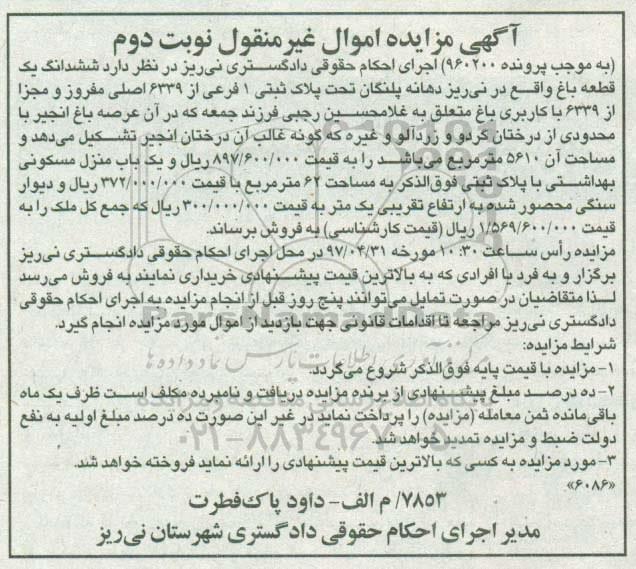 آگهی مزایده اموال غیرمنقول نوبت دوم
(به موجب پرونده ۹۶۰۲۰۰) اجرای احکام حقوقی دادگستری نی‌ریز در نظر دارد ششدانگ یک
قطعه باغ واقع در نی‌ریز دهانه پلنگان تحت پلاک ثبتی ۱ فرعی از ۶۳۳۹ اصلی مفروز و مجزا
از ۶۳۳۹ با کاربری باغ متعلق به غلامحسین رجبی فرزند جمعه که در آن عرصه باغ انجیر با
محدودی از درختان گردو و زردآلو و غیره که گونه غالب آن درختان انجیر تشکیل می‌دهد و
مساحت آن ۵۶۱۰ مترمربع می‌باشد را به قیمت ۸۹۷/۶۰۰/۰۰۰ ریال و یک باب منزل مسکونی
بهداشتی با پلاک ثبتی فوق‌الذکر به مساحت ۶۲ مترمربع با قیمت ۳۷۲/۰۰۰/۰۰۰ ریال و دیوار
سنگی محصور شده به ارتفاع تقریبی یک متر به قیمت ۳۰۰/۰۰۰/۰۰۰ ریال که جمع کل ملک را به
قیمت ۱/۵۶۹/۶۰۰/۰۰۰ ریال (قیمت کارشناسی) به فروش برساند.
مزایده رأس ساعت ۱۰:۳۰ مورخه ۹۷/۰۴/۳۱ در محل اجرای احکام حقوقی دادگستری نی‌ریز
برگزار و به فرد یا افرادی که به بالاترین قیمت پیشنهادی خریداری نمایند به فروش می‌رسد
لذا متقاضیان در صورت تمایل می‌توانند پنج روز قبل از انجام مزایده به اجرای احکام حقوقی
دادگستری نی‌ریز مراجعه تا اقدامات قانونی جهت بازدید از اموال مورد مزایده انجام گیرد.
شرایط مزایده:
۱- مزایده با قیمت پایه فوق‌الذکر شروع می‌گردد.
۲- ده درصد مبلغ پیشنهادی از برنده مزایده دریافت و نامبرده مکلف است ظرف یک ماه
باقی‌مانده ثمن معامله (مزایده) را پرداخت نماید در غیر این صورت ده درصد مبلغ اولیه به نفع
دولت ضبط و مزایده تمدید خواهد شد.
۳- مورد مزایده به کسی که بالاترین قیمت پیشنهادی را ارائه نماید فروخته خواهد شد.
«۶۰۸۶»
۷۸۵۳/ م الف- داود پاک‌فطرت
مدیر اجرای احکام حقوقی دادگستری شهرستان نی‌ریز
ParsNamadData
مرکز فرآوری اطلاعات پارس نماد داده‌ها
۰۲۱-۸۸۳۴۹۶۷۰-۵